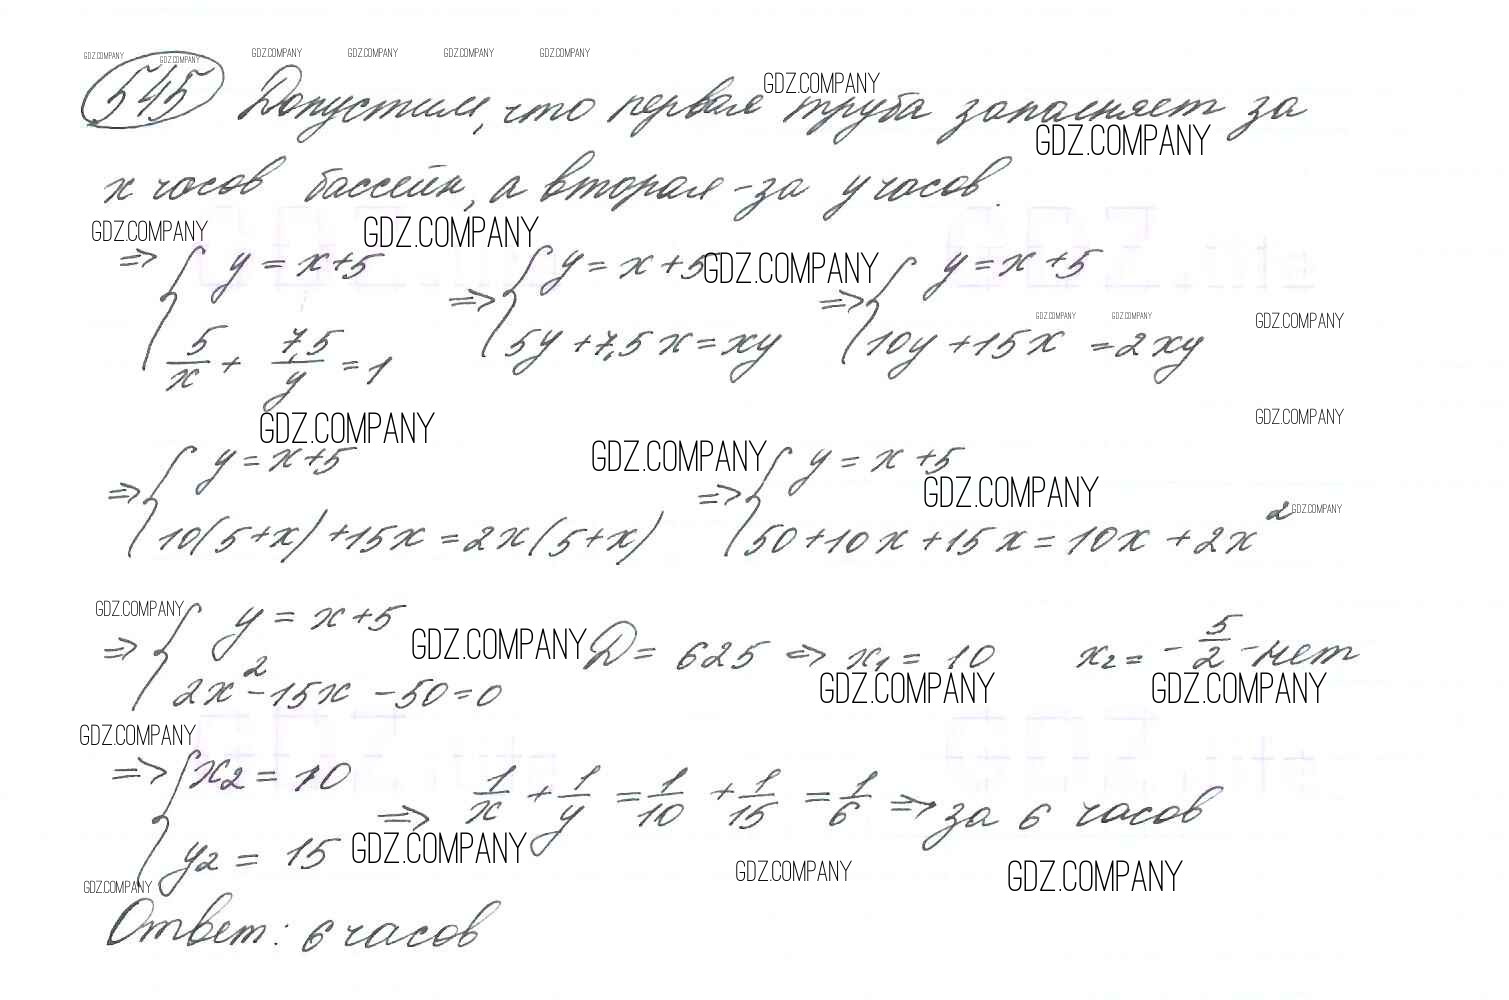 GDZ.COMPANY GDZ.COMPANY GDZ.COMPANY GDZ.COMPANY GDZ.COMPANY GDZ.COMPANY
545 Допустим, что первая труба заполняет за
GDZ.COMPANY GDZ.COMPANY
x часов бассейн, а вторая – за y часов.
GDZ.COMPANY GDZ.COMPANY GDZ.COMPANY
⇒ { y = x + 5 ; 5/x + 7,5/y = 1 ⇒ { y = x + 5 ; 5y + 7,5x = xy ⇒ { y = x + 5 ; 10y + 15x = 2xy
GDZ.COMPANY GDZ.COMPANY GDZ.COMPANY
GDZ.COMPANY GDZ.COMPANY GDZ.COMPANY
⇒ { y = x + 5 ; 10(5 + x) + 15x = 2x(5 + x) ⇒ { y = x + 5 ; 50 + 10x + 15x = 10x + 2x²
GDZ.COMPANY GDZ.COMPANY
GDZ.COMPANY GDZ.COMPANY
⇒ { y = x + 5 ; 2x² - 15x - 50 = 0 D = 625 ⇒ x₁ = 10 x₂ = -5/2 - нет
GDZ.COMPANY GDZ.COMPANY
GDZ.COMPANY
⇒ { x₂ = 10 ; y₂ = 15 ⇒ 1/x + 1/y = 1/10 + 1/15 = 1/6 ⇒ за 6 часов
GDZ.COMPANY GDZ.COMPANY GDZ.COMPANY
GDZ.COMPANY
Ответ: 6 часов